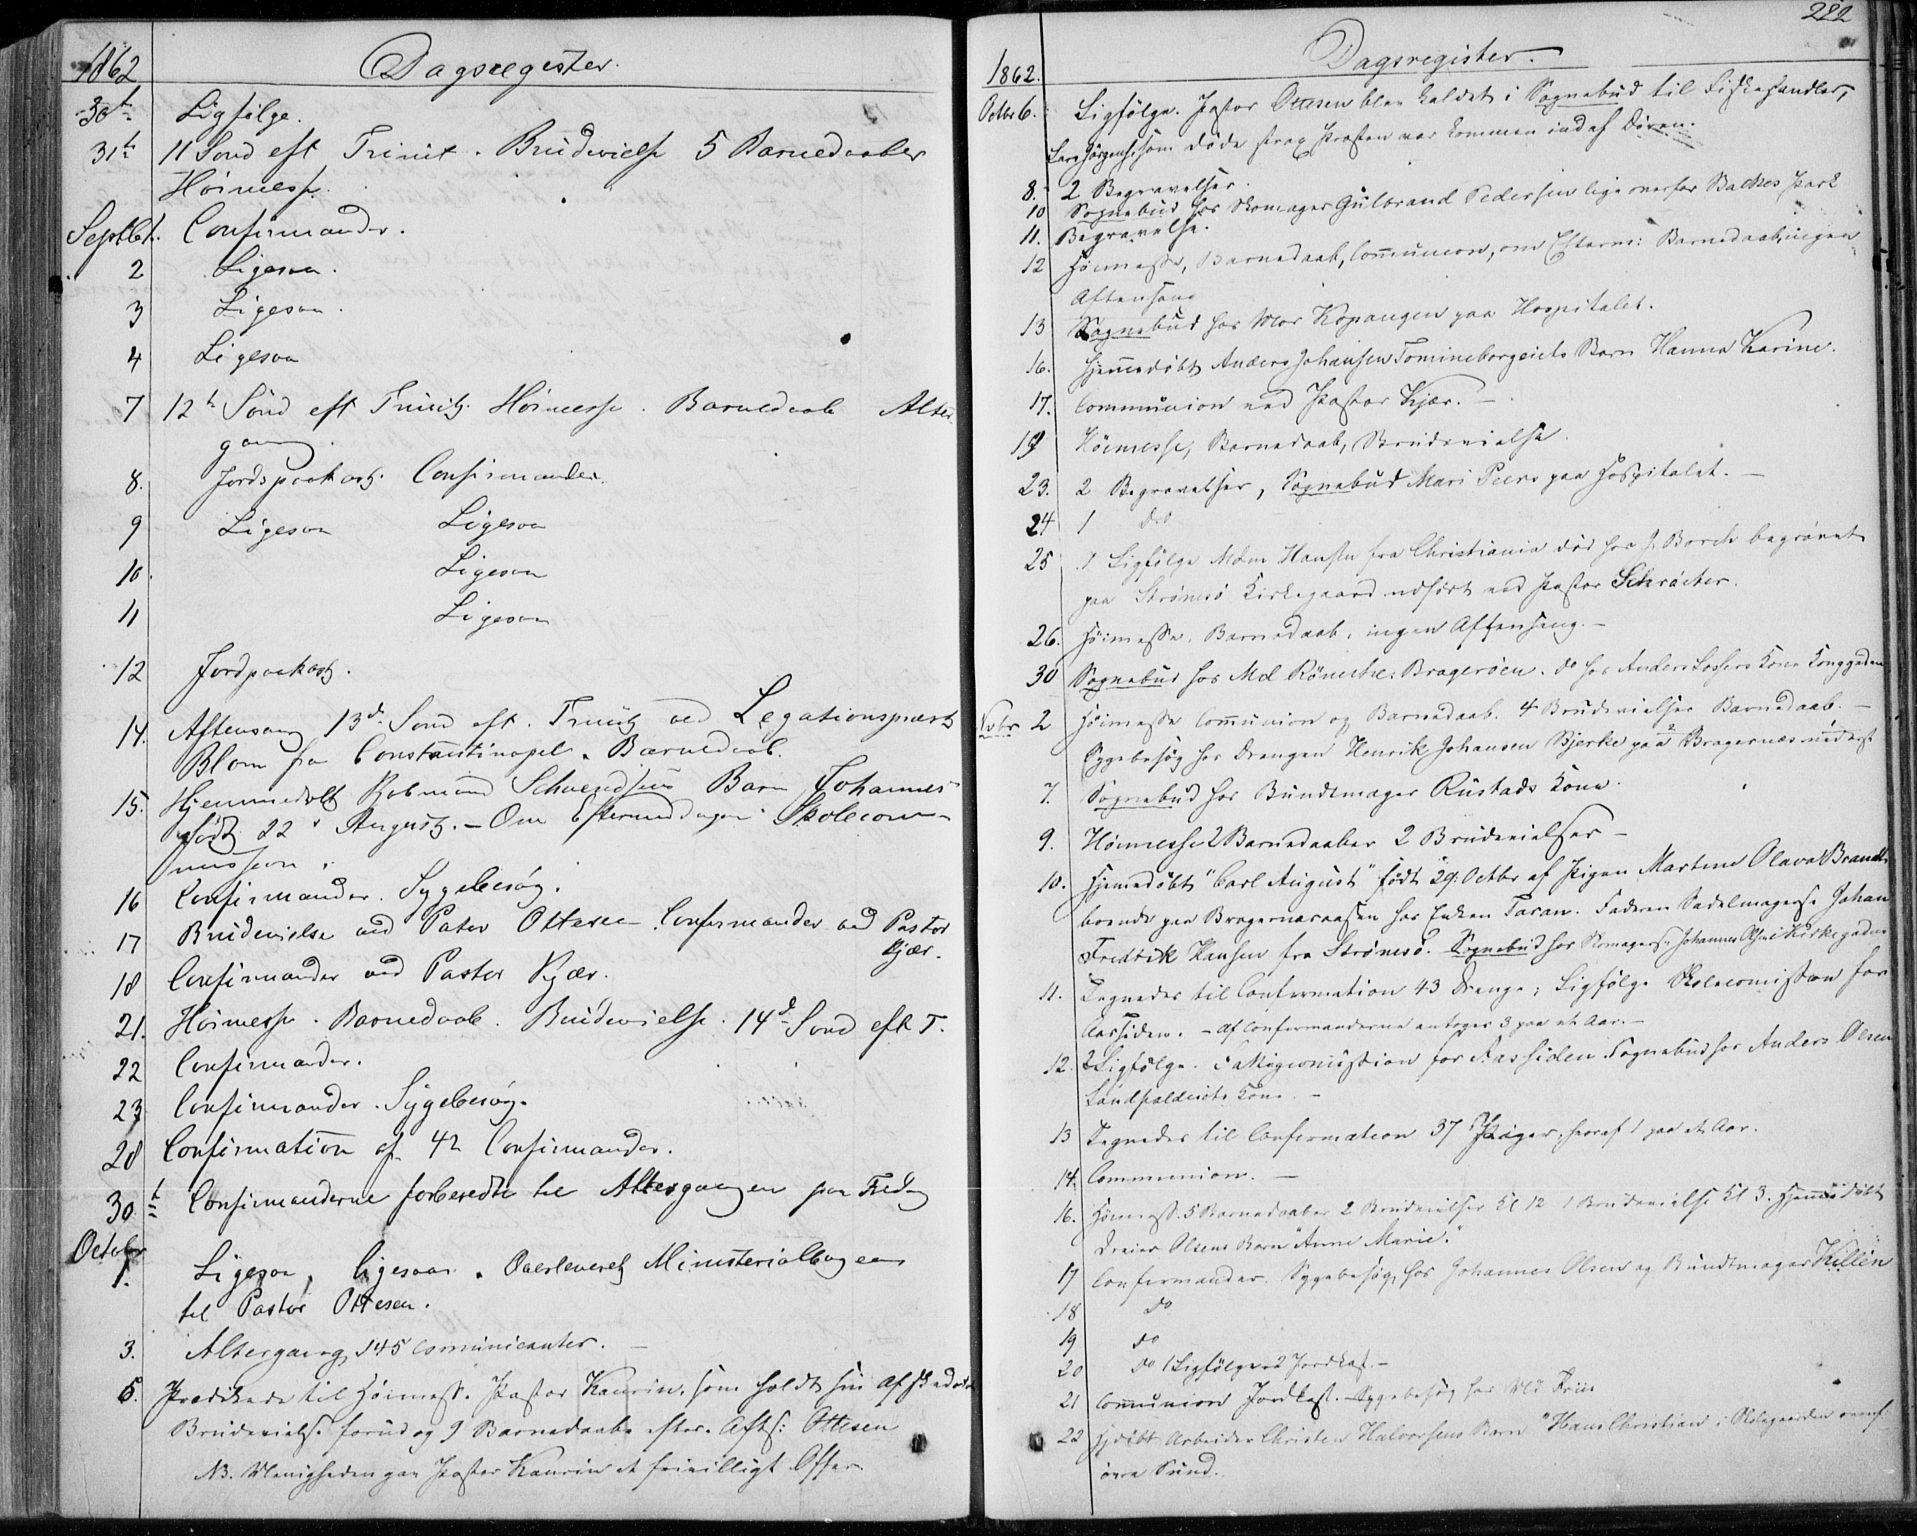 1862
Dagsregister.
30te Ligfølge.
31te 11 Sønd eft Trinit. Brudevielse 5 Barnedaaber
Høimesse.
Septbr 1. Confirmander.
2 Ligesaa.
3 Ligesaa.
4 Ligesaa
7 12te Sønd eft Trinit. Høimesse. Barnedaab Alter
gang.
8. Jordspaakast. Confirmander.
9 Ligesaa Ligesaa
10. Ligesaa
11 Ligesaa
12 Jordpaakast.
14. Aftensang 13de Sønd eft. Trinit ved Legationsprest
Blom fra Constantinopel. Barnedaab.
15. Hjemmedøbt Schwendsens Barn Johannes
født 22 August. – Om Eftermiddagen Skolecom-
mission.
16 Confirmander. Sygebesøg.
17 Brudevielse ved Pator Ottesen. Confirmander ved Pastor
Kjær.
18 Confirmander ved Pastor Kjær.
21. Høimesse. Barnedaab. Brudevielse. 14de Sønd eft T.
22 Confirmander.
23 Confirmander. Sygebesøg.
28 Confirmation af 42 Confirmander.
30te Confirmanderne forberedte til Altergangen paa Fredag
October
1. Ligesaa, ligesaa. Overleveret Ministerialbogen
til Pastor Ottesen.
3. Altergang, 145 Communicanter. –
5. Prædikede til Høimess. Pastor Kaurin, som holdt sin Afsked
Brudevielse forud og 9 Barnedaabe efter. Afts: Ottesen
NB. Menigheden gav Pastor Kaurin et frivilligt Offer.
222
1862.
Dagsregister.
Octbr 6. Ligfølge. Pastor Ottesen blev kaldet i Sognebud til Fiskehandler,
Lars Jørgens. som døde strax Præsten var kommen ind af Døren.
8. 2 Begravelser.
10 Sognebud hos Skomager Gulbrand Pedersen lige overfor Baches Park
11. Begravelse.
12 Høimesse, Barnedaab, Communion, om Efterm: Barnedaab, ingen
Aftensang
13 Sognebud hos Mor Kopangen paa Hospitalet.
16. Hjemmedøbt Anders Johansen Tomineborgeiets Barn Hanna Karine.
17. Communion ved Pastor Kjær. –
19 Høimesse, Barnedaab, Brudevielse.
23. 2 Begravelser, Sognebud Mari Peers paa Hospitalet. –
24 1 do
25 1 Ligfølge Mdm Hansen fra Christiania død hos J. Borch begravet
paa Strømsø Kirkegaard udført ved Pastor Schrøeter.
26. Høimesse. Barnedaab, ingen Aftensang. –
30 Sognebud hos Md Bragerøen. do hos Anders Kone Konggaden
Nvbr 2 Høimesse Communion og Barnedaab. 4 Brudevielser Barnedaab. –
Sygebesøg hos Drengen Henrik Johansen Bjerke paa Bragernæs
7. Sognebud hos Bundtmager Rustads Kone.
9. Høimesse 2 Barnedaaber 2 Brudevielser –
10. Hjemedøbt "Carl August" født 29. Octbr af Pigen Martine Olava Brandt
boende paa Bragernæsaasen hos Enken Taran. Faderen Sadelmagers. Johan
Fredrik Hansen fra Strømsø. Sognebud hos Skomagers. Johannes Kirkegaden
11. Tegnedes til Confirmation 43 Drenge; Ligfølge Skolecomission for
Aassiden. – Af Confirmanderne antoges 3 paa et Aar. –
12. 2 Ligfølge. Fattigcomission for Aassiden Sognebud hos Anders Olsen
Kone. –
13 Tegnedes til Confirmation 37 Piger, heraf 1 paa et Aar.
14. Communion. –
16. Høimess. 5 Barnedaaber 2 Brudevielser Kl 12 1 Brudevielse Kl 3. Hjemmedøbt
Dreier Olsens Barn "Anne Marie".
17 Confirmander. Sygebesøg hos Johannes Olsen og Bundtmager Killin
18 do
19 do
20 do 1 Ligfølge 2 Jordkast. –
21 Communion Jordkast. – Sygebesøg hos Md
22 Hjdøbt Arbeider Christen Halvorsens Barn "Hans Christian" i
øvre Sund.